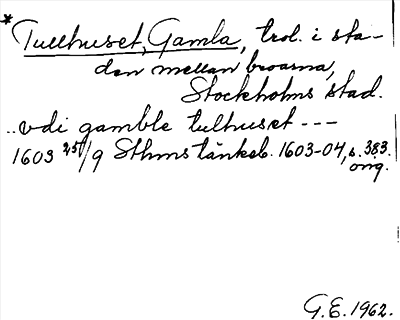 * Tullhuset, Gamla, trol. i sta-
den mellan broarna,
Stockholms stad.
..vdi gamble tulhuset ---
1603 25/9 Sthms tänkeb. 1603-04, s. 383.
orig.
G.E. 1962.